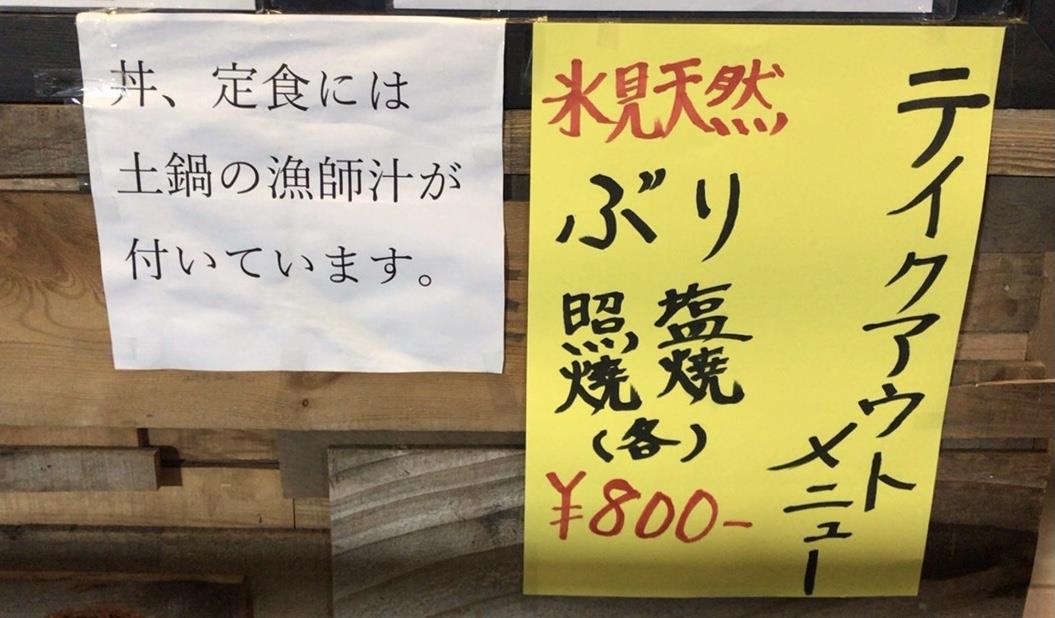 丼、定食には
土鍋の漁師汁が
付いています。
テイクアウト
メニュー
氷見天然
ぶり
塩焼
照焼
(各)
¥800-